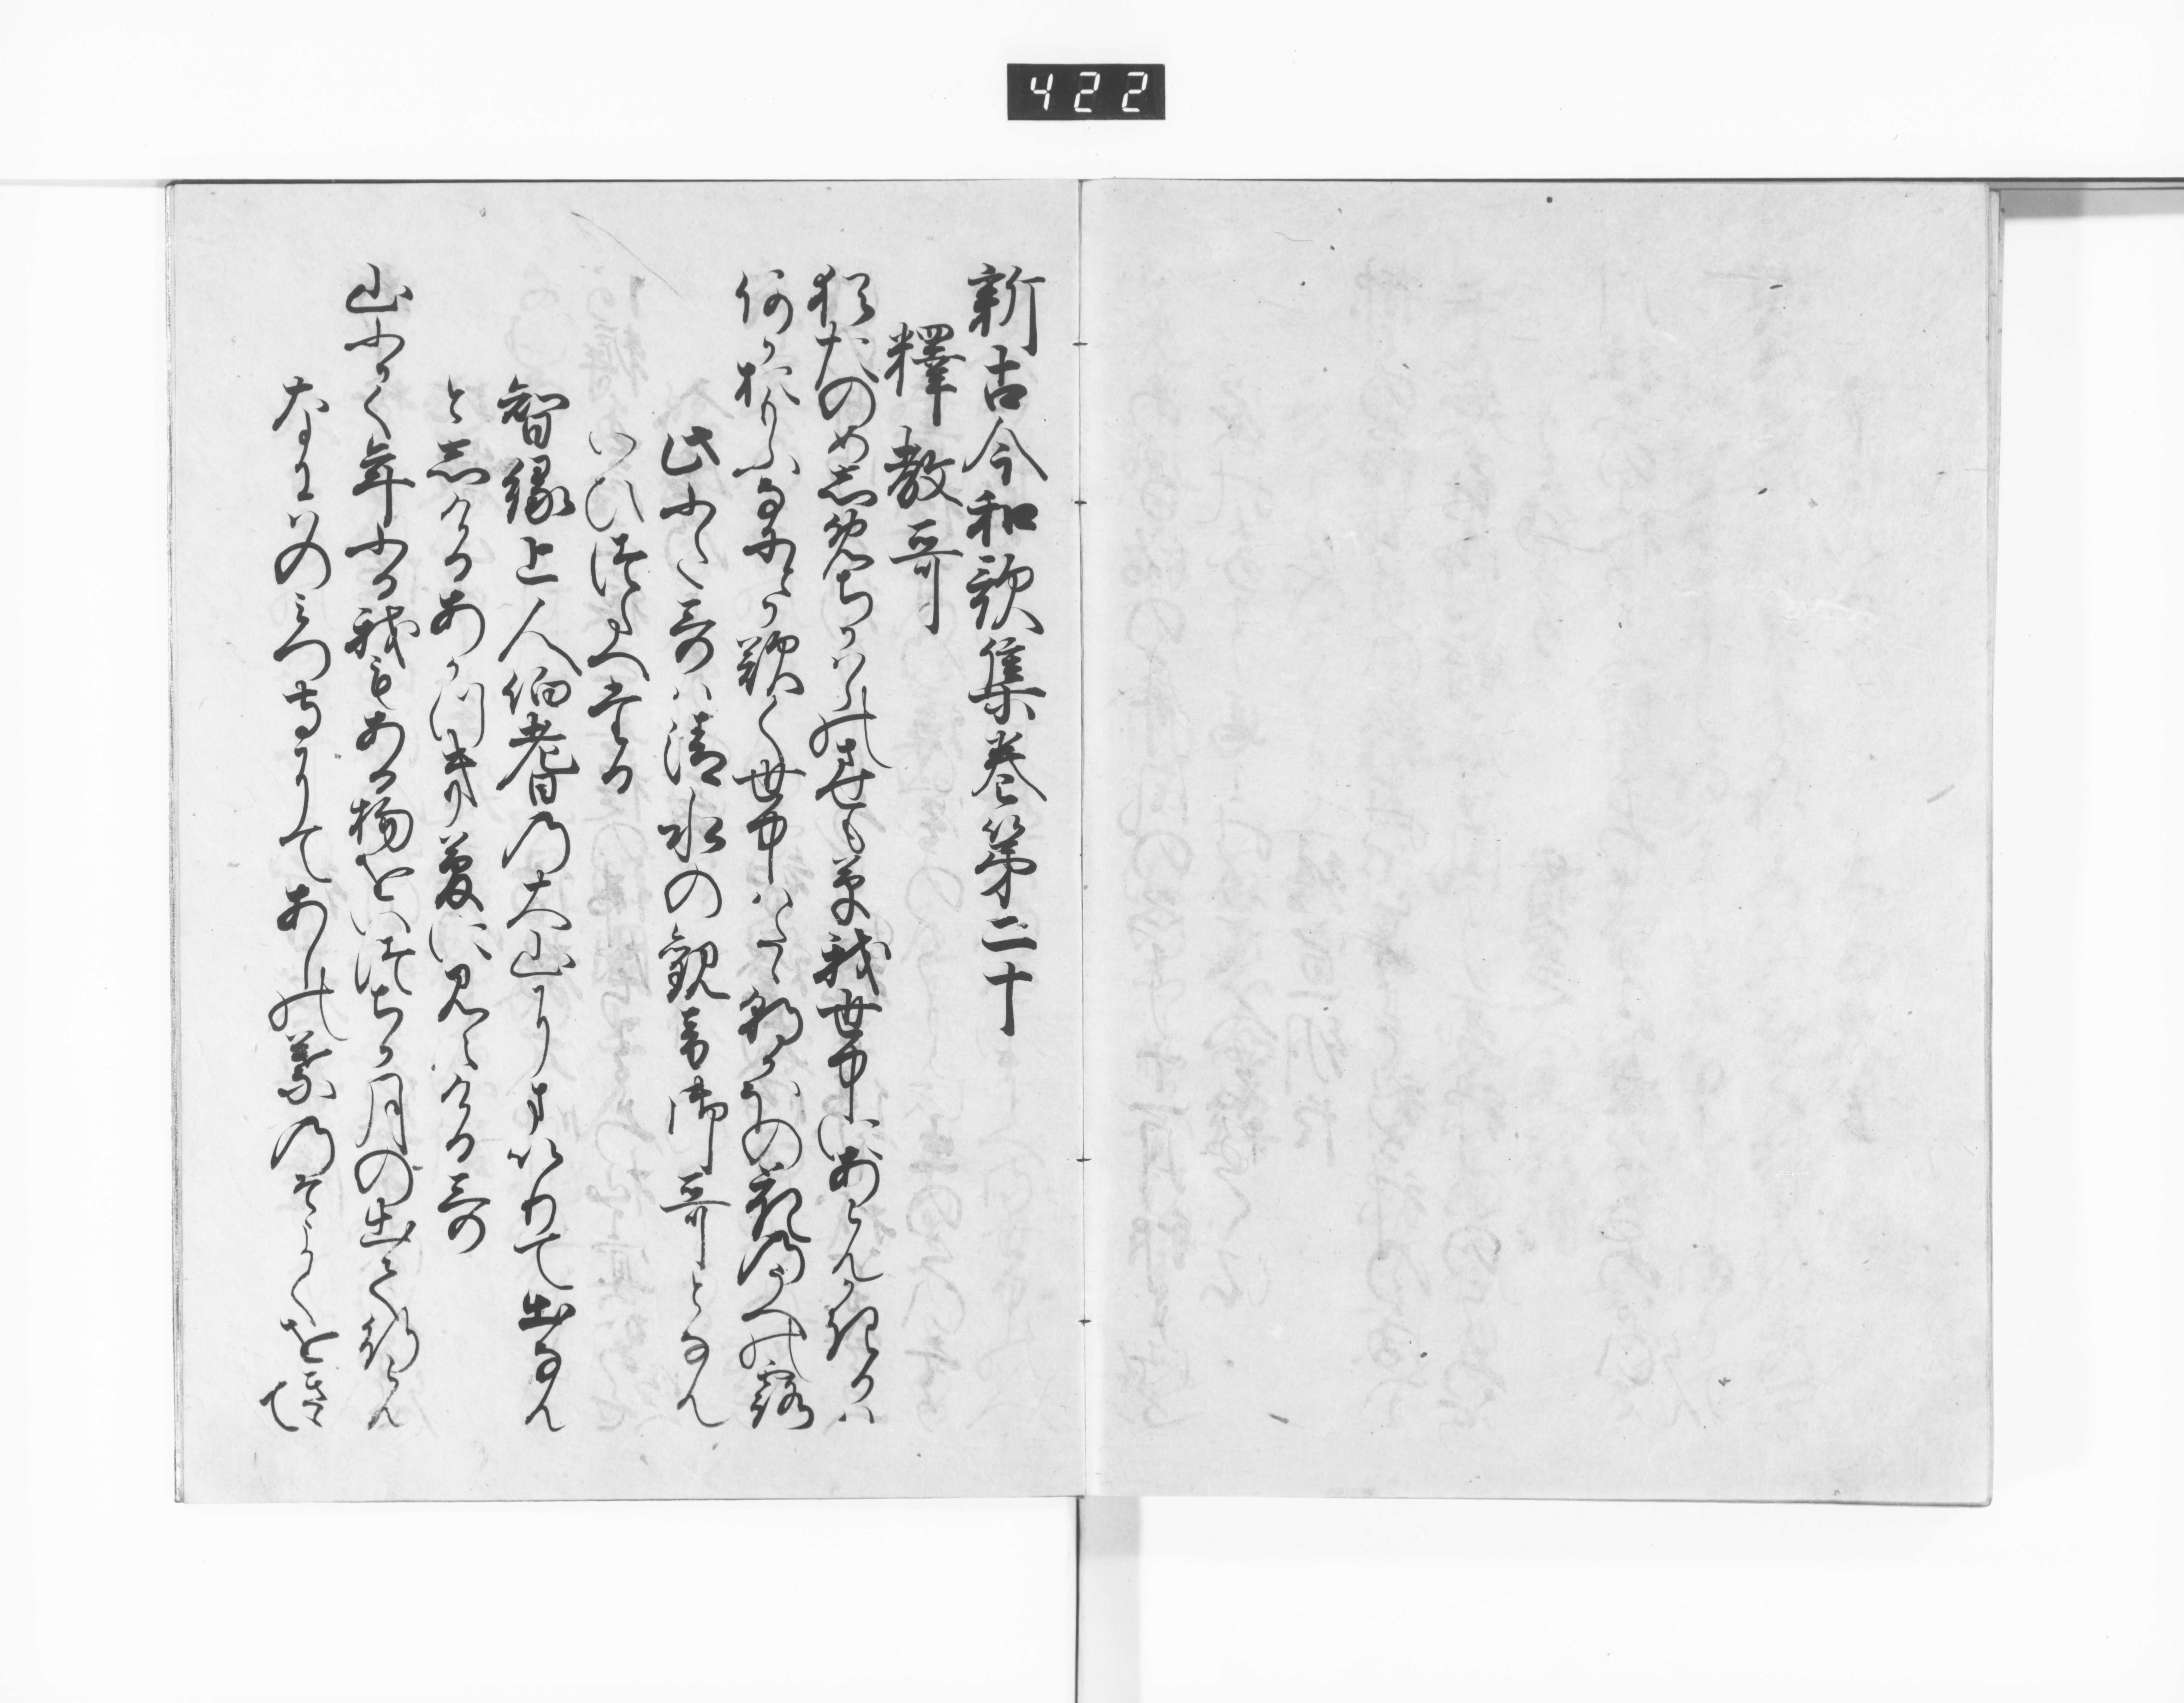 422
新古今和歌集巻第二十
釋教哥
猶たのめしめちかはらのさせも草我世中にあらんかきりは
何か おもふ なにか歎く世中はたゝ朝かほの花のうへの露
此ふた哥は清水の観音御哥となん
いひつたへたる
智縁上人伯耆の大山にまいりて出なん
としけるあか月夢に見えける哥
山ふかく年ふる我もある物をいつちか月の出て行らん
なにはのみつ寺にてあしの葉のそよくを聞て